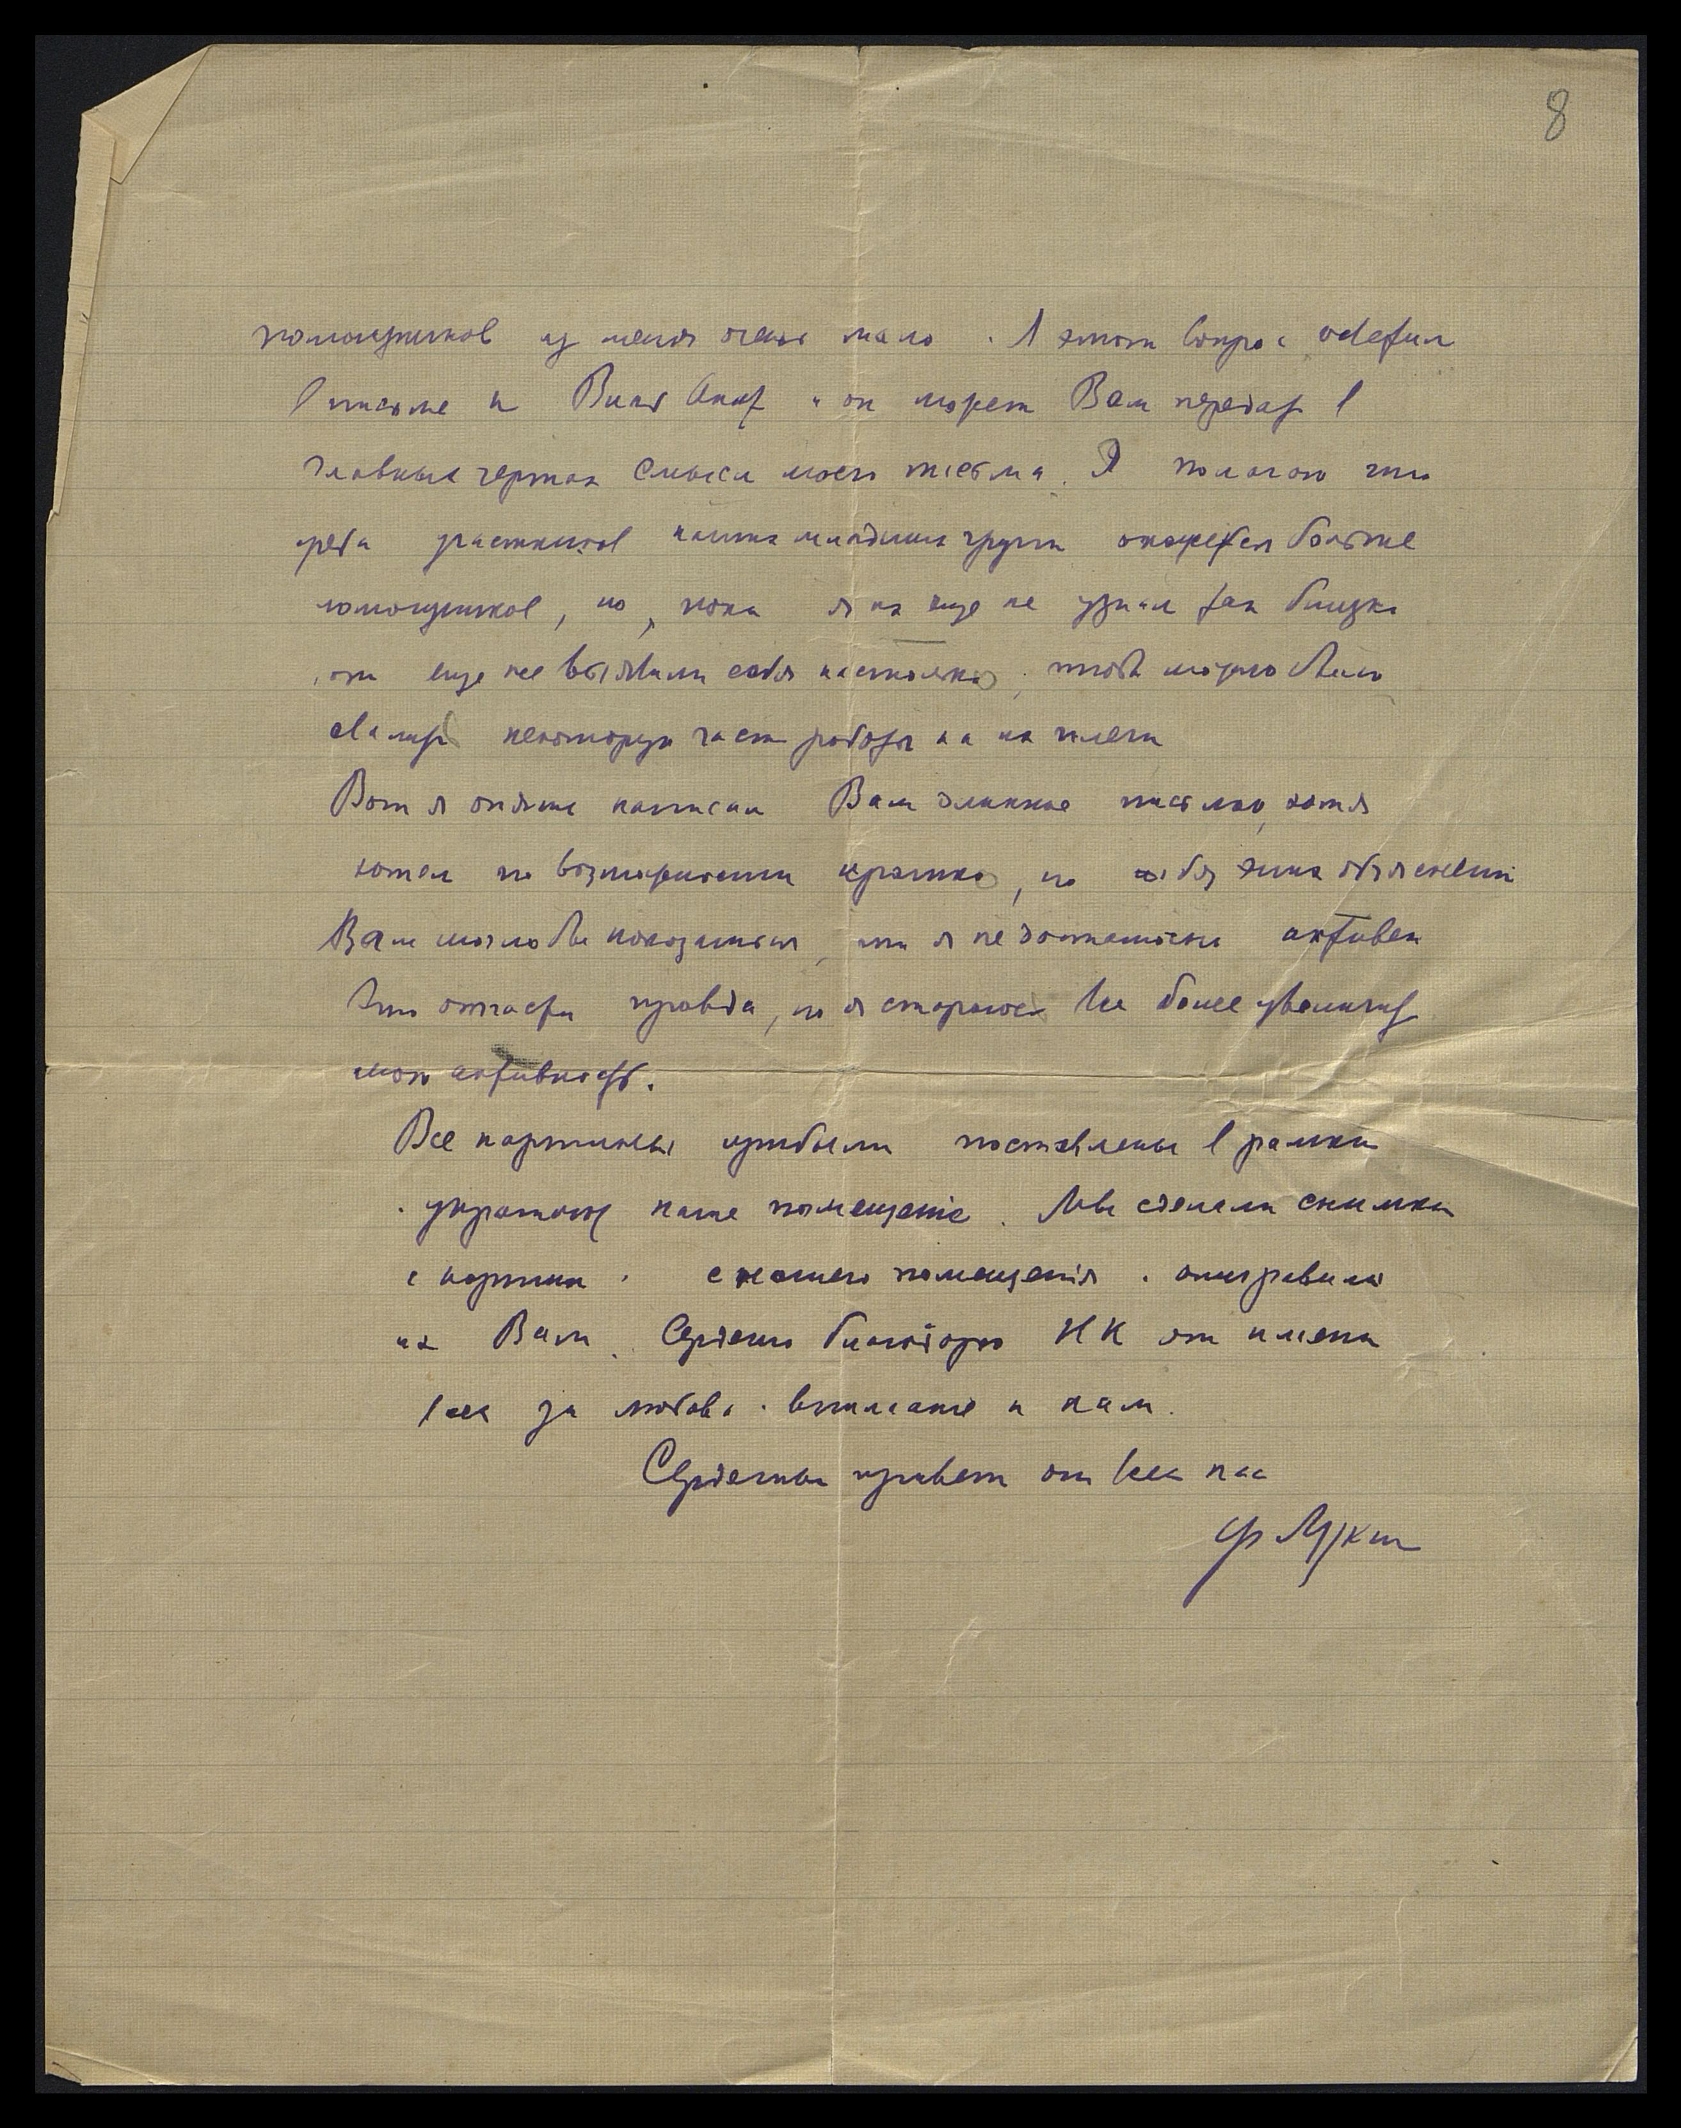 8
помощников у меня очень мало. Я этот вопрос осветил
в письме к Вил. Анат. и он может Вам передать в
главных чертах смысл моего письма. Я полагаю что
среди участников наших младших групп окажется больше
помощников, но, пока я их еще не узнал так близко
они еще не выявили себя настолько, чтобы можно было
свалить некоторую часть работы на их плечи
Вот я опять написал Вам длинное письмо, хотя
хотел по возможности кратко, но без этих объяснений
Вам могло бы показаться, что я не достаточно активен
Это отчасти правда, но я стараюсь все более увеличить
мою активность.
Все картины прибыли поставлены в рамки
и украшают наше помещение. Мы сделали снимки
с картин и с нашего помещения и отправили
их Вам. Сердечно благодарю НК от имени
всех за любовь и внимание к нам.
Сердечный привет от всех нас
Ф Лукин